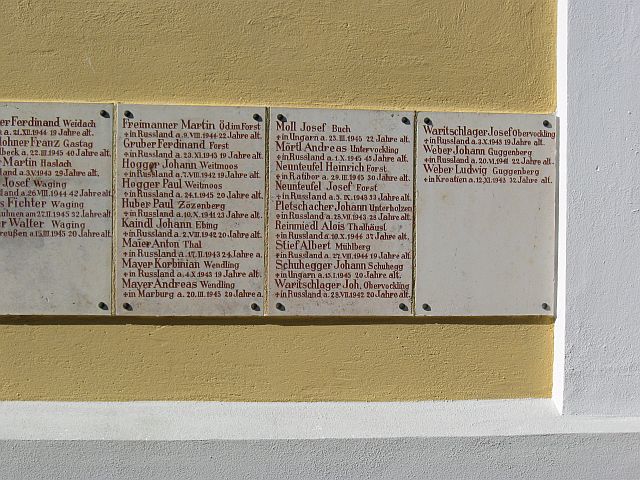 er Ferdinand Weidach
a. 21.XII.1944 19 Jahre alt.
ohner Franz Gastag
lbeck a. 22.III.1945 40 Jahre alt.
Martin Haslach
and a. 3.V.1943 29 Jahre alt.
Josef Waging
sland a. 26.VIII.1944 42 Jahre alt.
s Fichter Waging
a. 27.II.1945 32 Jahre alt.
r Walter Waging
reußen a. 15.III.1945 20 Jahre alt.
Freimanner Martin Öd im Forst
+in Russland a. 9.VIII.1944 22 Jahre alt.
Gruber Ferdinand Forst
+in Russland a. 23.XI.1945 19 Jahre alt.
Hogger Johann Weitmoos
+in Russland a. 7.VIII.1942 19 Jahre alt.
Hogger Paul Weitmoos
+in Russland a. 24.I.1945 20 Jahre alt.
Huber Paul Zözenberg
+in Russland a. 10.X.1941 23 Jahre alt.
Kaindl Johann Ebing
+in Russland a. 2.VIII.1942 20 Jahre alt.
Maier Anton Thal
+in Russland a. 17.II.1943 24 Jahre a.
Mayer Korbinian Wendling
+in Russland a. 4.X.1943 19 Jahre alt.
Mayer Andreas Wendling
+in Marburg a. 20.III.1945 29 Jahre a.
Moll Josef Buch
+in Ungarn a. 23.III.1945 22 Jahre alt.
Mörtl Andreas Untervockling
+in Russland a. 1.X.1945 45 Jahre alt.
Neunteufel Heinrich Forst
+in Ratibor a. 29.III.1945 30 Jahre alt.
Neunteufel Josef Forst
+in Russland a. 5.IX.1943 33 Jahre alt.
Pletschacher Johann Unterholzen
+in Russland a. 28.VII.1943 28 Jahre alt.
Reinmiedl Alois Thalhäusl
+in Russland a. 10.X.1944 37 Jahre alt.
Stief Albert Mühlberg
+in Russland a. 27.VIII.1944 19 Jahre alt.
Schuhegger Johann Schuhegg
+in Ungarn a. 15.I.1945 20 Jahre alt.
Waritschlager Joh. Obervockling
+in Russland a. 28.VII.1942 20 Jahre alt.
Waritschlager Josef Obervockling
+in Russland a. 3.X.1943 19 Jahre alt.
Weber Johann Guggenberg
+in Russland a. 20.VI.1941 22 Jahre alt.
Weber Ludwig Guggenberg
+in Kroatien a. 12.XI.1943 32 Jahre alt.